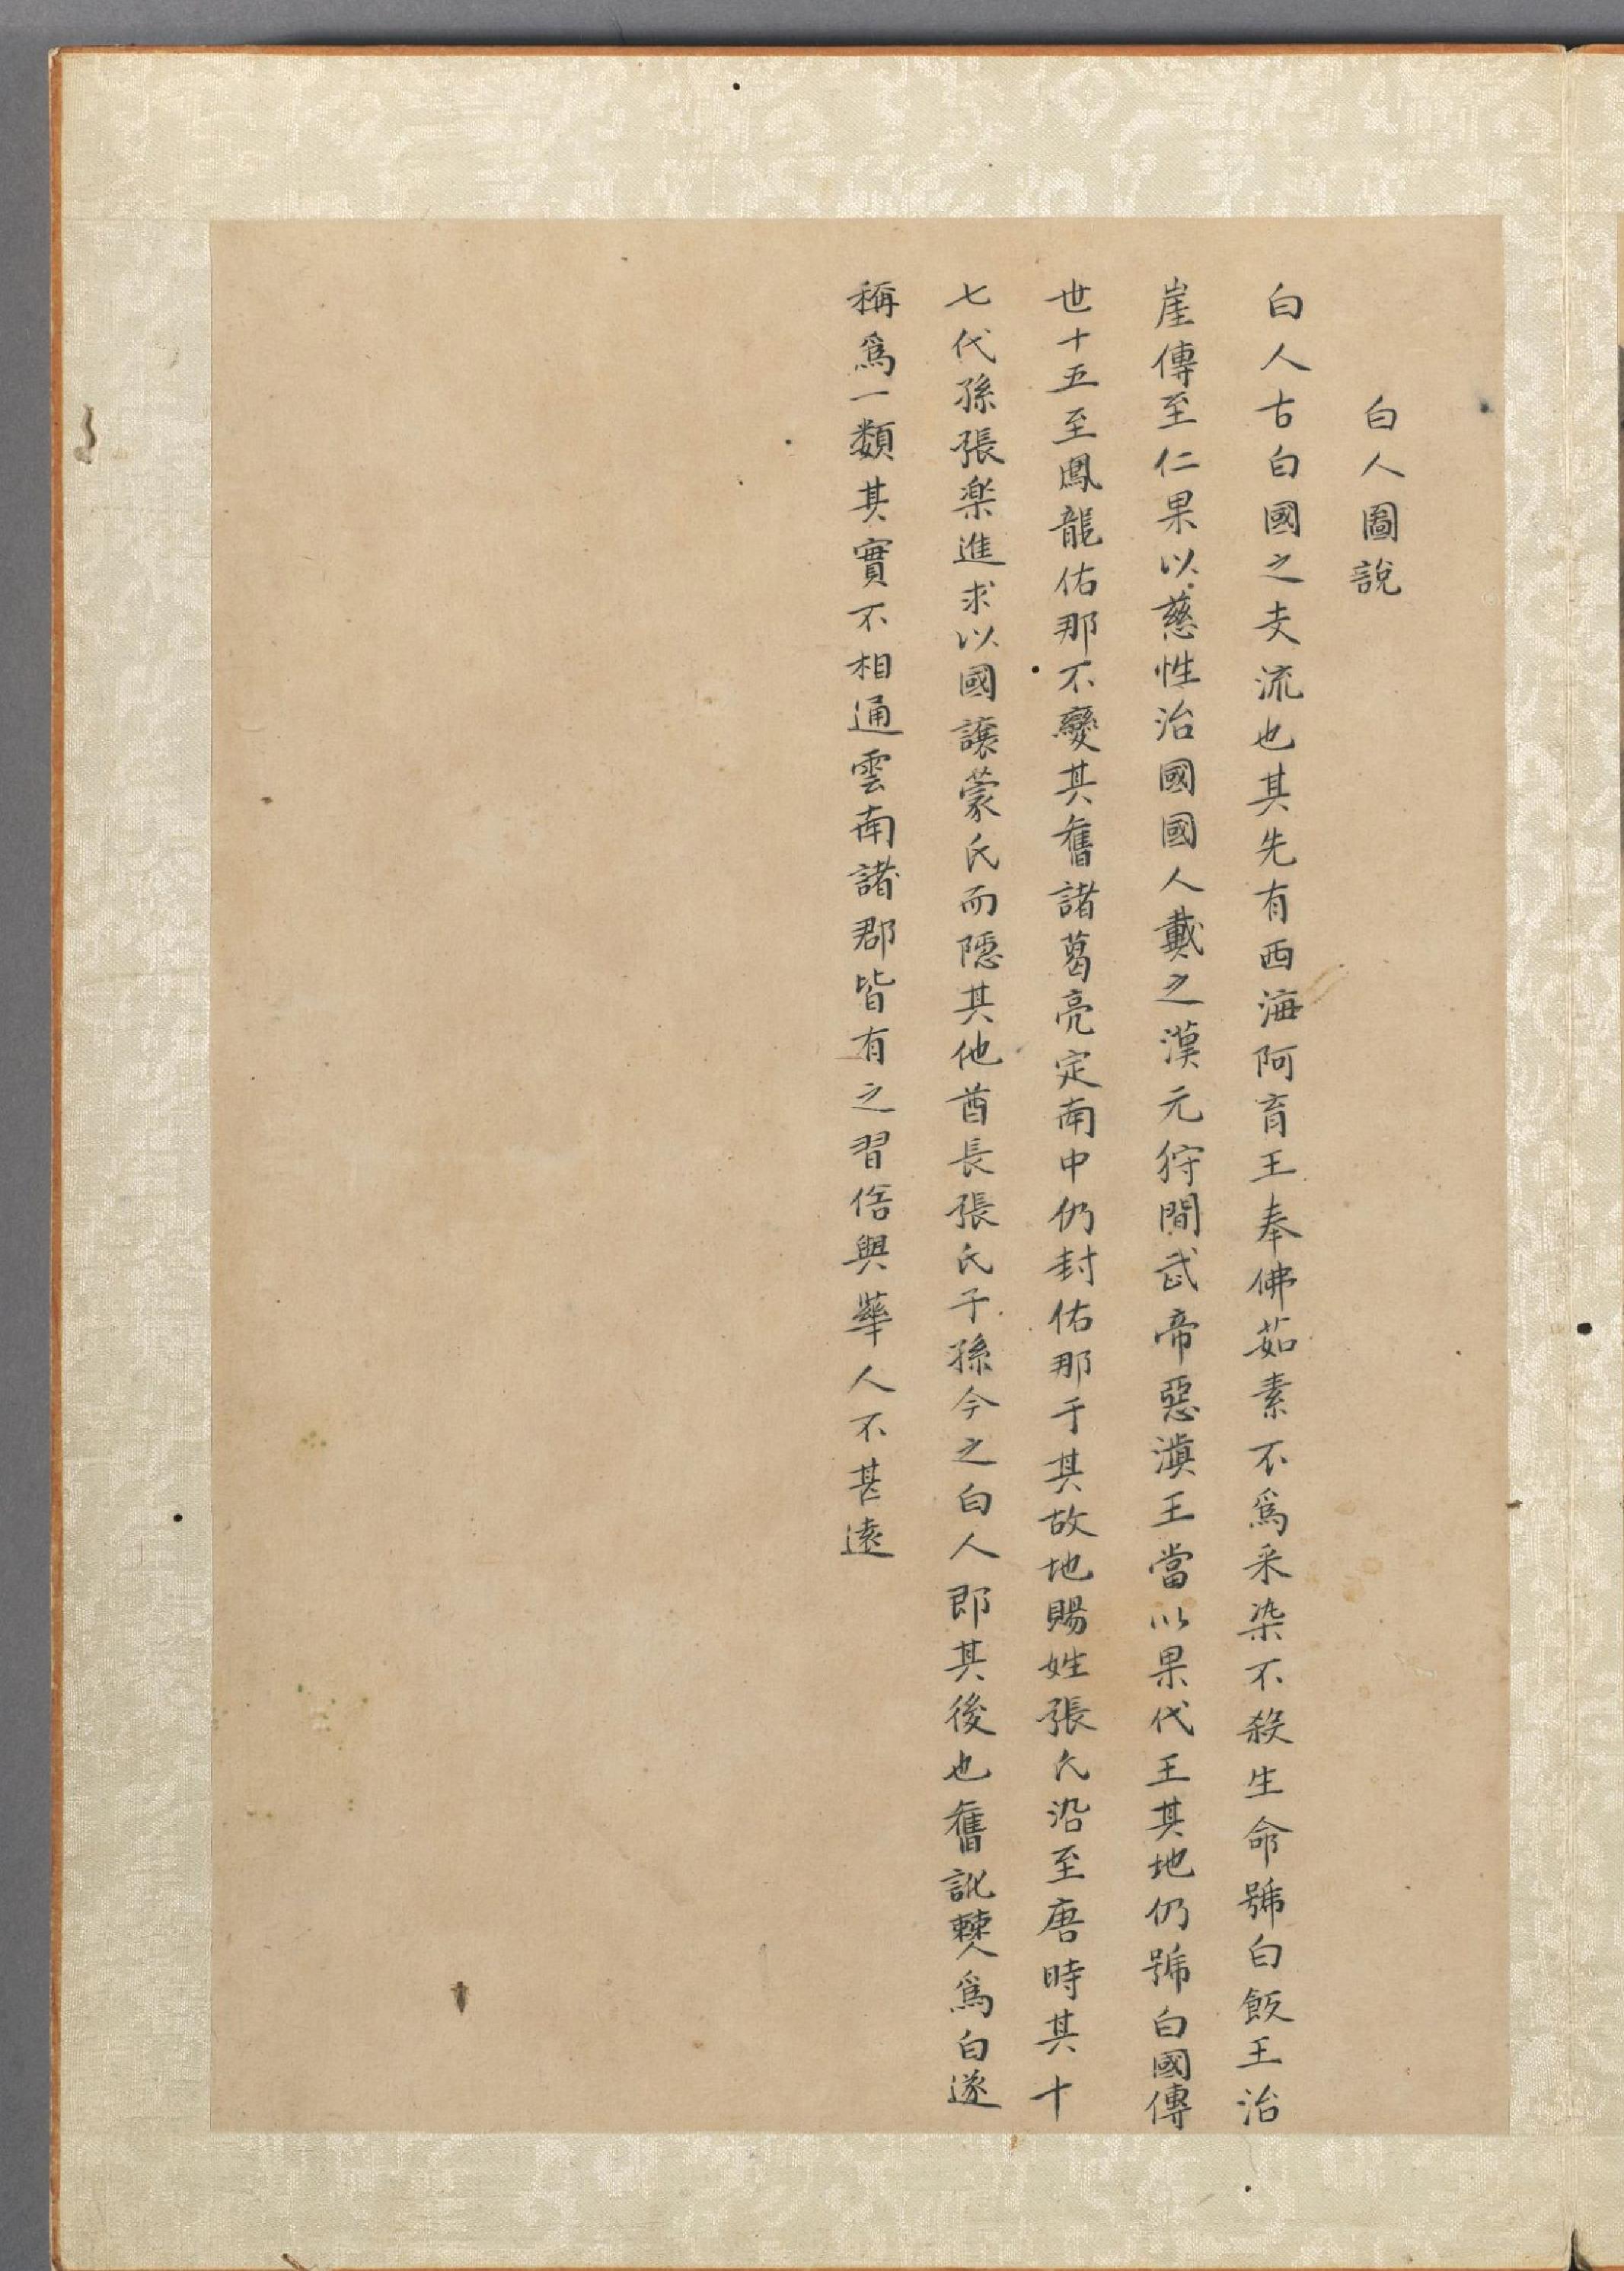 白人圖說
白人古白國之支流也其先有西海阿育王奉佛茹素不爲采染不殺生命號白飯王治
崖傳至仁果以慈性治國國人戴之漢元狩間武帝惡滇王當以果代王其地仍號白國傳
世十五至鳳龍佑那不變其舊諸葛亮定南中仍封佑那于其故地賜姓張氏沿至唐時其十
七代孫張楽進求以國讓蒙氏而隱其他酋長張氏子孫今之白人即其後也舊訛僰爲白遂
稱爲一類其實不相通雲南諸郡皆有之習俗與華人不甚遠